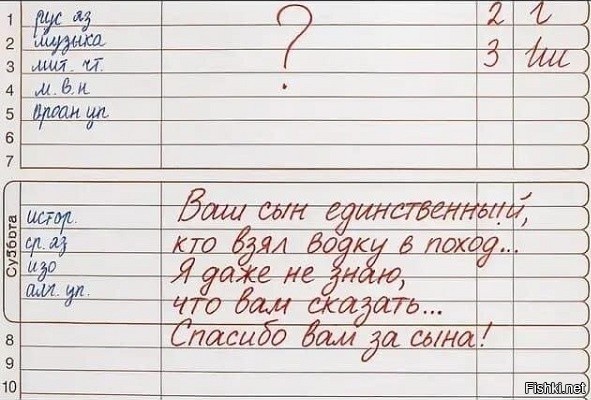 1 рус яз ? 2
2 музыка
3 лит. чт. 3
4 м.в.н
5
6
7
Суббота
истор.
ср. яз
изо
алг. уп.
Ваш сын единственный,
кто взял водку в поход...
Я даже не знаю,
что вам сказать...
Спасибо вам за сына!
8
9
10
Fishki.net